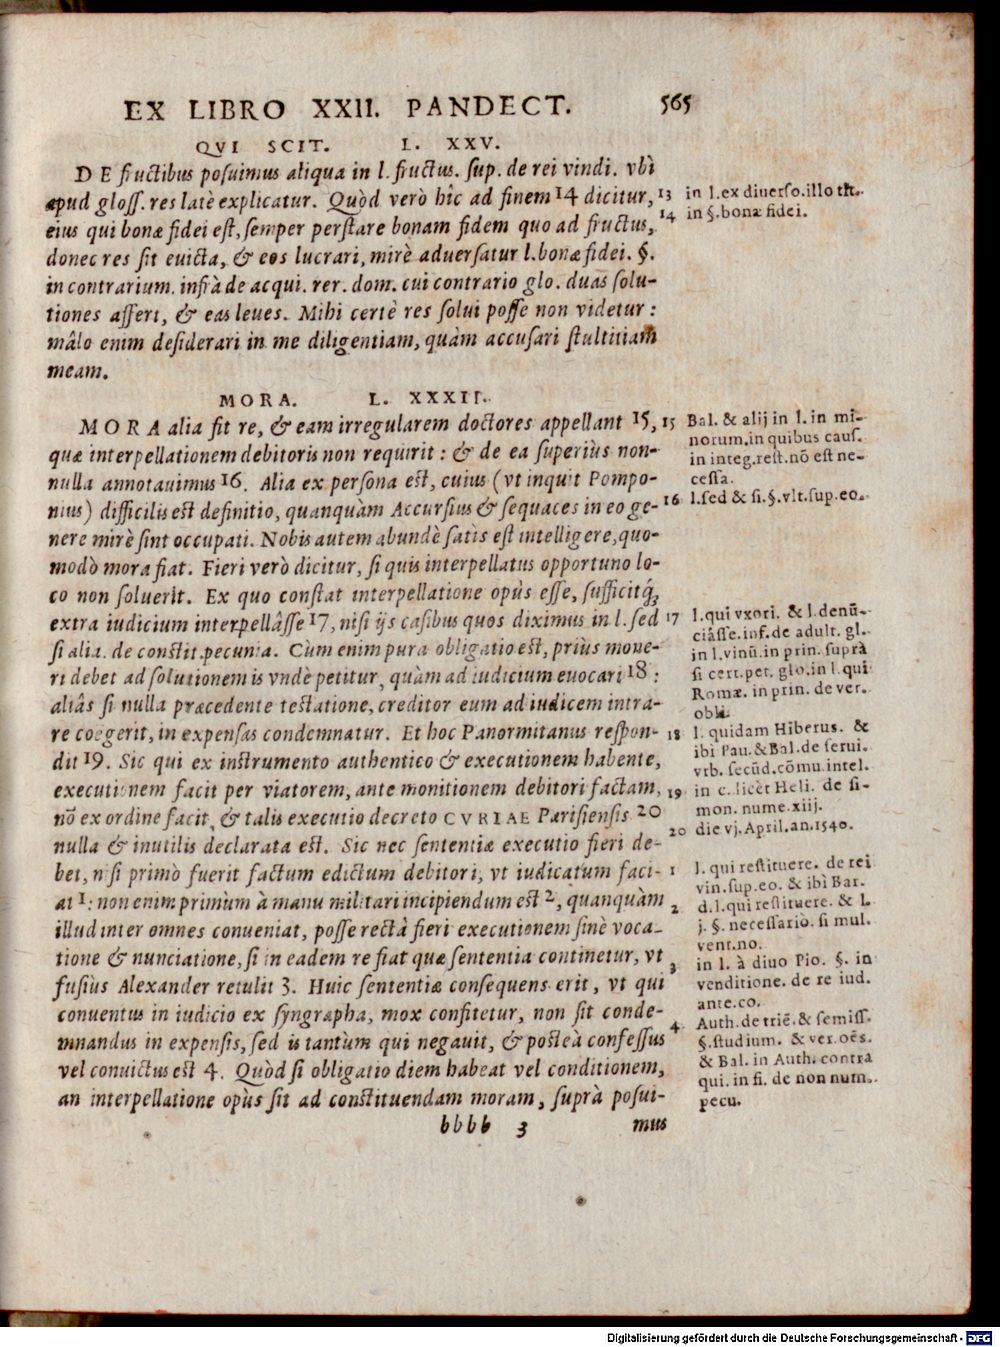 EX LIBRO XXII. PANDECT. 565
QVI SCIT. L. XXV.
DE fructibus posuimus aliqua in l. fructus. sup. de rei vindi. vbì
apud gloss. res latè explicatur. Quòd verò hîc ad finem 14 dicitur,
eius qui bonæ fidei est, semper perstare bonam fidem quo ad fructus,
donec res sit euicta, & eos lucrari, mirè aduersatur l. bonæ fidei. §.
in contrarium. infrà de acqui. rer. dom. cui contrario glo. duas solu-
tiones affert, & eas leues. Mihi certè res solui posse non videtur:
mâlo enim desiderari in me diligentiam, quàm accusari stultitiam
meam.
MORA. L. XXXII.
MORA alia fit re, & eam irregularem doctores appellant 15,
quæ interpellationem debitoris non requirit: & de ea superiùs non-
nulla annotauimus 16. Alia ex persona est, cuius (vt inquit Pompo-
nius) difficilis est definitio, quanquàm Accursius & sequaces in eo ge-
nere mirè sint occupati. Nobis autem abundè satis est intelligere, quo-
modò mora fiat. Fieri verò dicitur, si quis interpellatus opportuno lo-
co non soluerit. Ex quo constat interpellatione opùs esse, sufficitq́;
extra iudicium interpellâsse 17, nisi ijs casibus quos diximus in l. sed
si alia. de constit. pecunia. Cùm enim pura obligatio est, priùs moue-
ri debet ad solutionem is vndè petitur, quàm ad iudicium euocari 18:
aliâs si nulla præcedente testatione, creditor eum ad iudicem intra-
re coegerit, in expensas condemnatur. Et hoc Panormitanus respon-
dit 19. Sic qui ex instrumento authentico & executionem habente,
executionem facit per viatorem, ante monitionem debitori factam,
nō ex ordine facit, & talis executio decreto CVRIAE Parisiensis 20
nulla & inutilis declarata est. Sic nec sententiæ executio fieri de-
bet, nisi primò fuerit factum edictum debitori, vt iudicatum faci-
at 1: non enim primùm à manu militari incipiendum est 2, quanquàm
illud inter omnes conueniat, posse rectà fieri executionem sinè voca-
tione & nunciatione, si in eadem re fiat quæ sententia continetur, vt
fusiùs Alexander retulit 3. Huic sententiæ consequens erit, vt qui
conuentus in iudicio ex syngrapha, mox confitetur, non sit conde-
mnandus in expensis, sed is tantùm qui negauit, & posteà confessus
vel conuictus est 4. Quòd si obligatio diem habeat vel conditionem,
an interpellatione opùs sit ad constituendam moram, suprà posui-
bbbb 3 mus
13 in l. ex diuerso. illo tit.
14 in §. bonæ fidei.
15 Bal. & alij in l. in mi-
norum. in quibus caus.
in integ. rest. nō est ne-
cessa.
16 l. sed & si. §. vlt. sup. eo.
17 l. qui vxori. & l. denū-
ciâsse. inf. de adult. gl.
in l. vinū. in prin. suprà
si cert. pet. glo. in l. qui
Romæ. in prin. de ver.
obli.
18 l. quidam Hiberus. &
ibi Pau. & Bal. de serui.
vrb. secūd. cōmu. intel.
19 in c. licèt Heli. de si-
mon. nume. xiij.
20 die vj. April. an. 1540.
1 l. qui restituere. de rei
vin. sup. eo. & ibì Bar.
2 d. l. qui restituere. & l.
j. §. necessariò. si mul.
vent. no.
3 in l. à diuo Pio. §. in
venditione. de re iud.
ante. co.
4 Auth. de triē. & semiss.
§. studium. & ver. oēs.
& Bal. in Auth. contra
qui. in fi. de non num.
pecu.
Digitalisierung gefördert durch die Deutsche Forschungsgemeinschaft - DFG